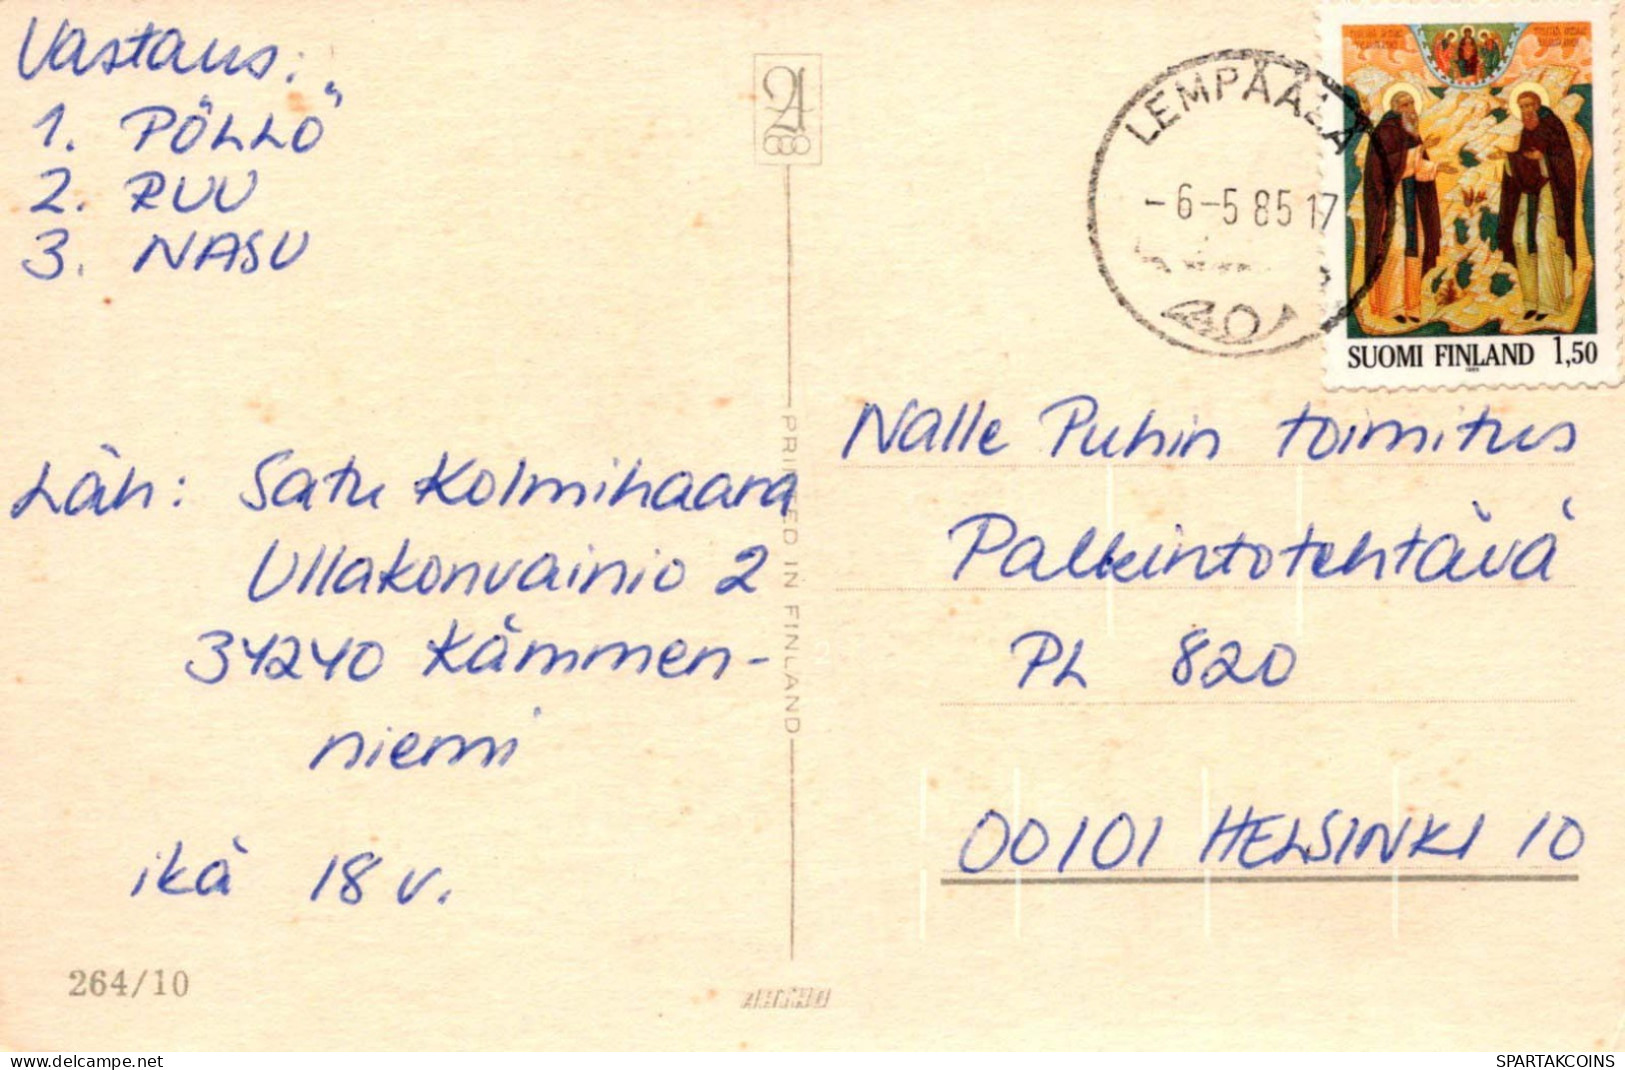 Vastaus:
1. PÖLLÖ
2. RUU
3. NASU
Läh: Satu Kolmihaara
Ullakonvainio 2
34240 Kämmen-
niemi
ikä 18 v.
264/10
PRINTED IN FINLAND
LEMPÄÄLÄ
-6-5 85 17
SUOMI FINLAND 1,50
Nalle Puhin toimitus
Palkintotehtävä
PL 820
00101 HELSINKI 10
www.delcampe.net
SPARTAKCOINS